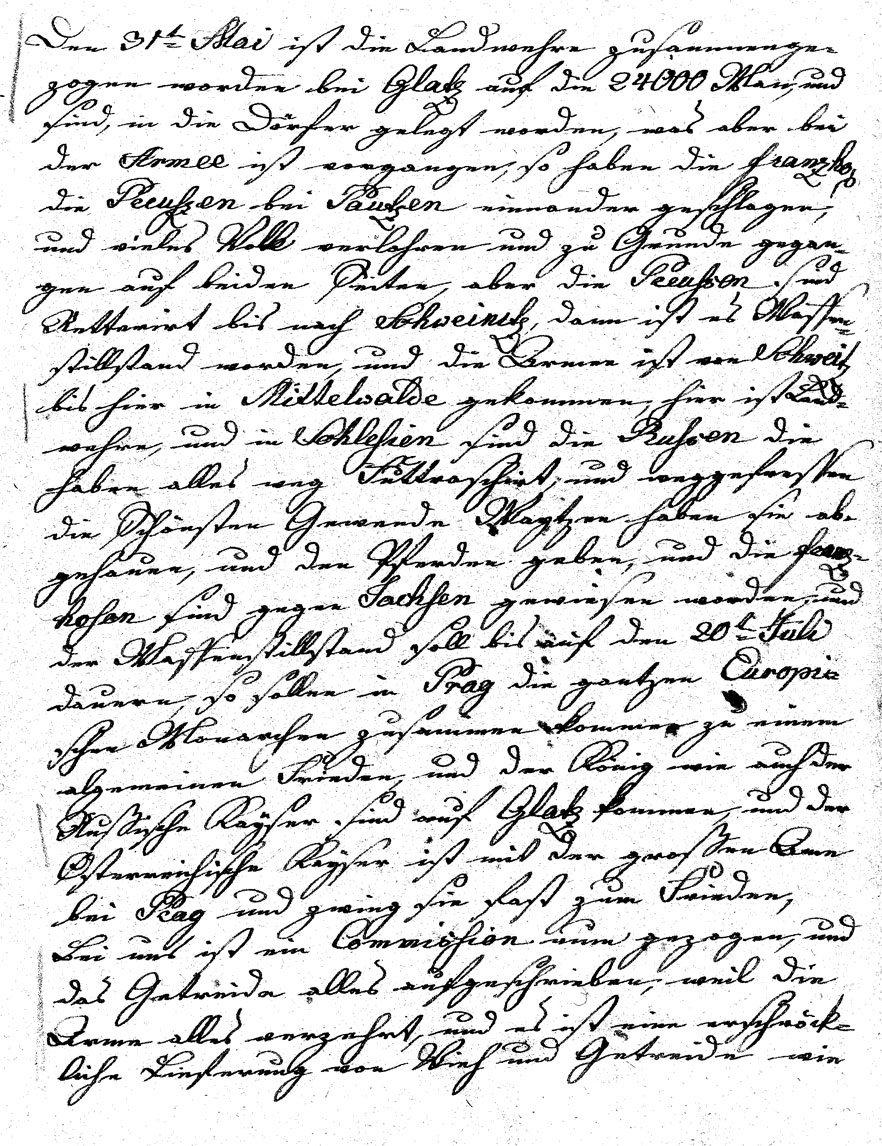 Den 31t Mai ist die Landwehre zusammenge-
zogen worden bei Glatz auf die 24000 Man, und
sind, in die Dörfer gelegt worden, was aber bei
der Armee ist vorgangen, so haben die franzho,
die Preußen bei Pautzen einnander geschlagen,
und vieles Volk verlohren und zu Grunde gegan-
gen auf beiden Seiten, aber die Preussen sind
Retterirt bis nach Schweinitz, dann ist es Waffen-
stillstand worden, und die Armee ist von Schweitz
bis hier in Mittelwalde gekommen, hier ist Land-
wehre, und in Schlesien sind die Russen die
haben alles weg Futtraschirt, und weggefressen
die Schönsten Gewende Waytzen haben sie ab-
gehauen, und den Pferden geben, und die franz-
hosen sind gegen Sachsen gewiesen worden, und
der Waffenstillstand soll bis auf den 20t Juli
dauern, so sollen in Prag die gantzen Europi-
schen Monarchen zusammen kommen zu einem
algemeinen Frieden, und der König wie auch der
Russische Kayser sind auf Glatz kommen, und der
Österreichische Kayser ist mit der grossen Arme
bei Prag und zwing sie fast zum Frieden,
Bei uns ist ein Commission rum gezogen, und
das Getreide alles aufgeschrieben, weil die
Arme alles verzehrt, und es ist eine erschröck-
liche Lieferung von Vieh und Getreide wie